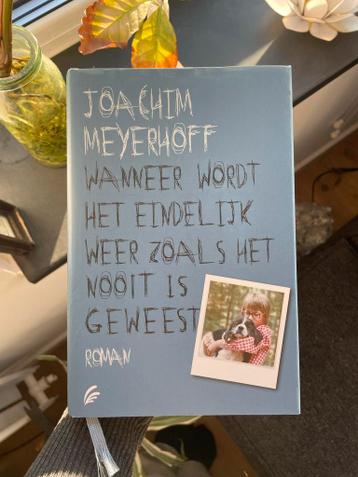 JOACHIM
MEYERHOFF
WANNEER WORDT
HET EINDELIJK
WEER ZOALS HET
NOOIT IS
GEWEEST
ROMAN